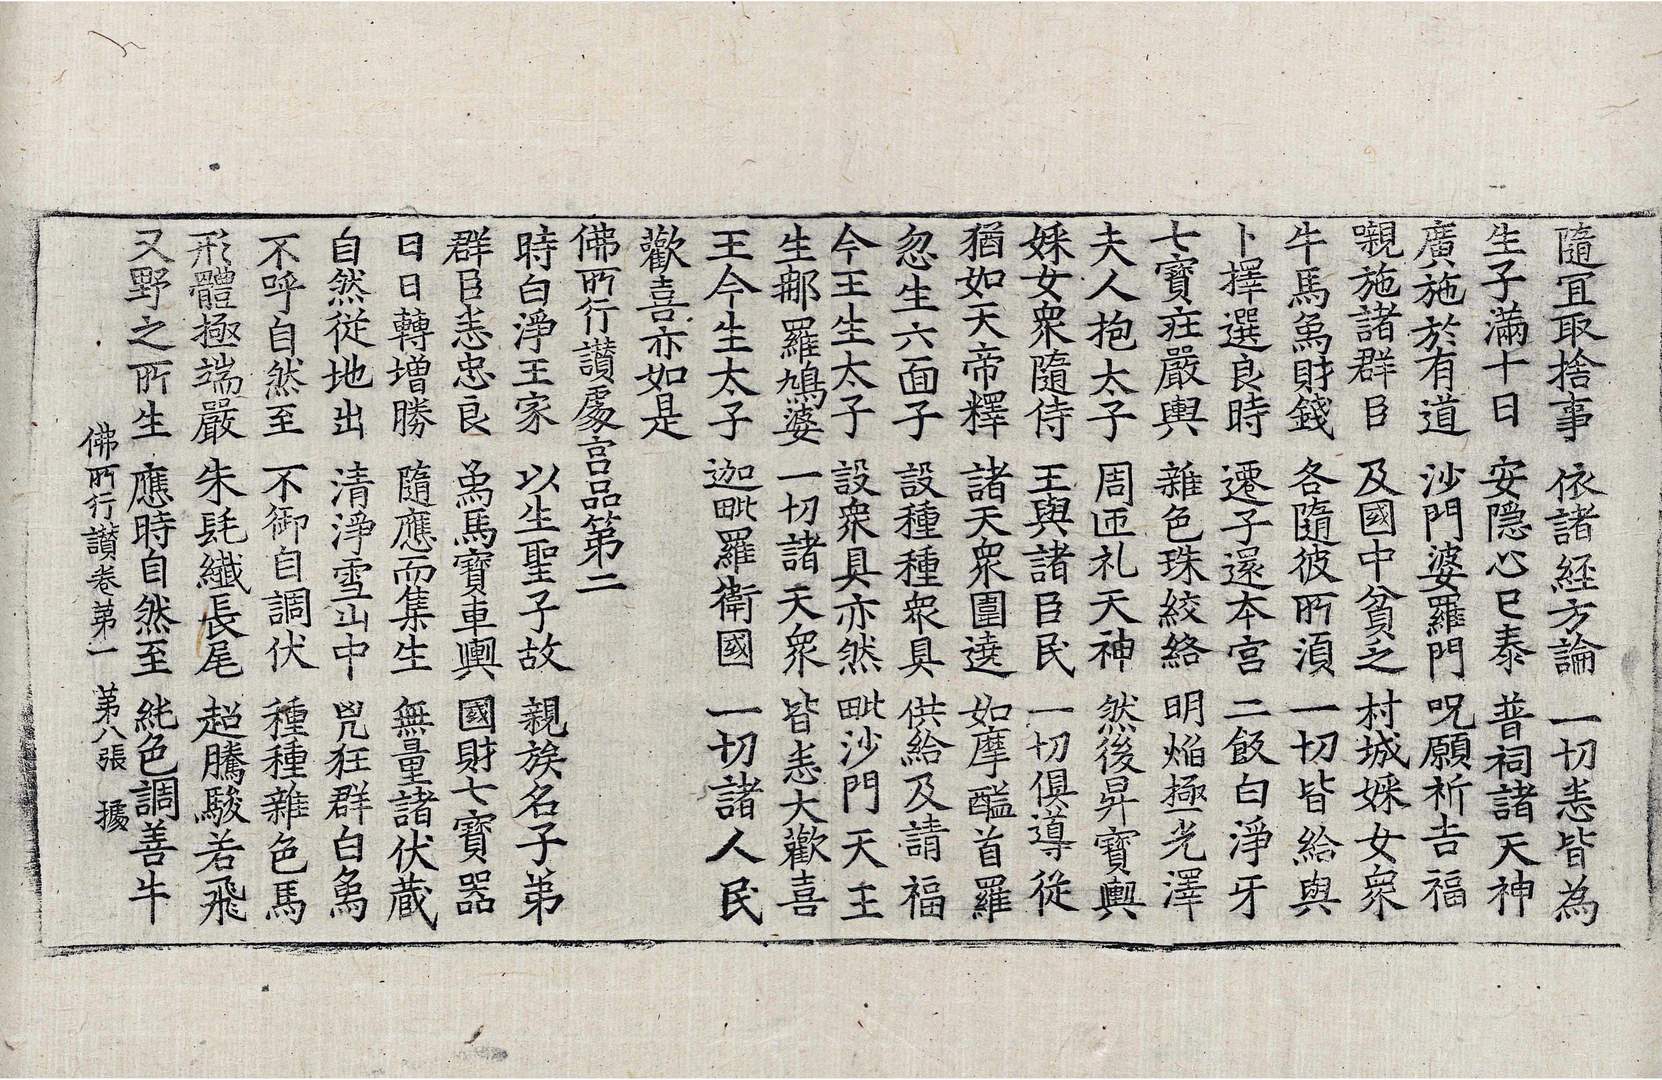 隨冝取捨事 依諸經方論 一切悉皆為
生子滿十日 安隱心已泰 普祠諸天神
廣施於有道 沙門婆羅門 呪願祈吉福
嚫施諸群臣 及國中貧乏 村城婇女衆
牛馬象財錢 各隨彼所湏 一切皆給與
卜擇選良時 遷子還本宮 二飯白淨牙
七寶莊嚴輿 雜色珠絞絡 明焰極光澤
夫人抱太子 周匝礼天神 然後昇寶輿
婇女衆隨侍 王與諸臣民 一切俱導從
猶如天帝釋 諸天衆圍遶 如摩醯首羅
忽生六面子 設種種衆具 供給及請福
今王生太子 設衆具亦然 毗沙門天王
生那羅鳩婆 一切諸天衆 皆悉大歡喜
王今生太子 迦毗羅衛國 一切諸人民
歡喜亦如是
佛所行讃處宮品第二
時白淨王家 以生聖子故 親族名子弟
群臣悉忠良 象馬寶車輿 國財七寶器
日日轉增勝 隨應而集生 無量諸伏藏
自然從地出 清淨雪山中 兇狂群白象
不呼自然至 不御自調伏 種種雜色馬
形體極端嚴 朱髦纖長尾 超騰駿若飛
又野之所生 應時自然至 純色調善牛
佛所行讃卷第一 第八張 據